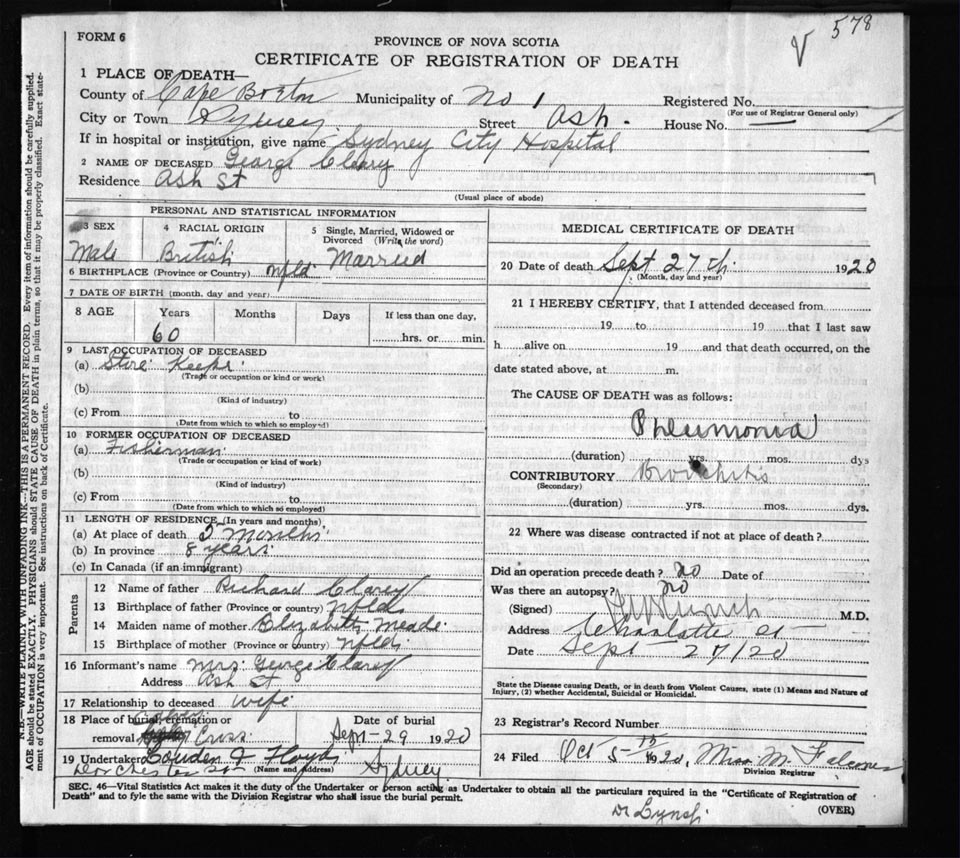 578
V
FORM 6
PROVINCE OF NOVA SCOTIA
CERTIFICATE OF REGISTRATION OF DEATH
1 PLACE OF DEATH—
County of Cape Breton Municipality of No 1 Registered No.
(For use of Registrar General only)
City or Town Sydney Street Ash. House No. —
If in hospital or institution, give name Sydney City Hospital
2 NAME OF DECEASED George Clarey
Residence Ash St
(Usual place of abode)
PERSONAL AND STATISTICAL INFORMATION
3 SEX 4 RACIAL ORIGIN 5 Single, Married, Widowed or Divorced (Write the word)
Male British Married
6 BIRTHPLACE (Province or Country) Nfld.
7 DATE OF BIRTH (month, day and year)
8 AGE Years Months Days If less than one day,
60 hrs. or min.
9 LAST OCCUPATION OF DECEASED
(a) Store Keepr
(Trade or occupation or kind or work)
(b)
(Kind of industry)
(c) From to
(Date from which to which so employed)
10 FORMER OCCUPATION OF DECEASED
(a) Fisherman
(Trade or occupation or kind of work)
(b)
(Kind of industry)
(c) From to
(Date from which to which so employed)
11 LENGTH OF RESIDENCE (In years and months)
(a) At place of death 5 Months
(b) In province 8 years
(c) In Canada (if an immigrant)
Parents
12 Name of father Richard Clarey
13 Birthplace of father (Province or country) Nfld
14 Maiden name of mother Elizabeth Meade
15 Birthplace of mother (Province or country) Nfld
16 Informant's name Mrs. George Clarey
Address Ash St
17 Relationship to deceased wife
18 Place of burial, cremation or Date of burial
removal Cross Sept 29 1920
19 Undertaker Lowden & Floyd
Dorchester St (Name and address) Sydney
MEDICAL CERTIFICATE OF DEATH
20 Date of death Sept 27th 1920
(Month, day and year)
21 I HEREBY CERTIFY, that I attended deceased from
19 to 19 that I last saw
h alive on 19 and that death occurred, on the
date stated above, at m.
The CAUSE OF DEATH was as follows:
Pneumonia
(duration) yrs. mos. dys
CONTRIBUTORY Bronchitis
(Secondary)
(duration) yrs. mos. dys.
22 Where was disease contracted if not at place of death?
Did an operation precede death? No Date of
Was there an autopsy? No
(Signed) Lynch M.D.
Address Charlotte St
Date Sept 27/20
State the Disease causing Death, or in death from Violent Causes, state (1) Means and Nature of
Injury, (2) whether Accidental, Suicidal or Homicidal.
23 Registrar's Record Number
24 Filed Oct 5 1920, Miss M. Falconer
Division Registrar
SEC. 46—Vital Statistics Act makes it the duty of the Undertaker or person acting as Undertaker to obtain all the particulars required in the "Certificate of Registration of
Death" and to fyle the same with the Division Registrar who shall issue the burial permit.
(OVER)
Dr Lynch
N.B.—WRITE PLAINLY WITH UNFADING INK—THIS IS A PERMANENT RECORD. Every item of information should be carefully supplied.
AGE should be stated EXACTLY. PHYSICIANS should STATE CAUSE OF DEATH in plain terms, so that it may be properly classified. Exact state-
ment of OCCUPATION is very important. See instructions on back of Certificate.